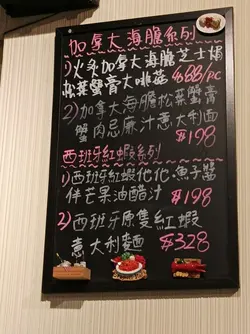 加拿大海膽系列
1)火炙加拿大海膽芝士焗
松葉蟹膏大啡菇 $88/PC
2)加拿大海膽松葉蟹膏
蟹肉忌廉汁意大利面
$198
西班牙紅蝦系列
1)西班牙紅蝦他他魚子醬
伴芒果油醋汁 $198
2)西班牙原隻紅蝦
意大利麵 $328